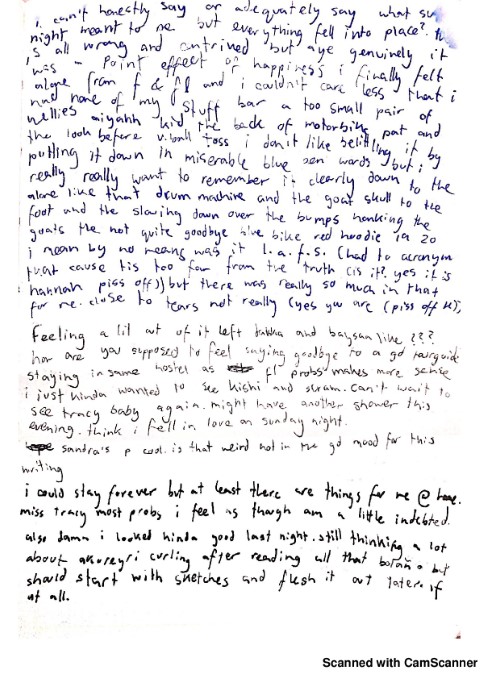 i can't honestly say or adequately say what su
night meant to me but everything fell into place?
is all wrong and contrived but aye genuinely it
was point effect of happiness i finally felt
alone from f & and i couldn't care less that i
had none of my stuff bar a too small pair of
wellies kid the back of motorbike pat and
the look before v.ball toss i don't like belittling it by
putting it down in miserable blue pen words but i
really really want to remember it clearly down to the
alone like that drum machine and the goat skull to the
foot and the slowing down over the bumps honking the
goats the not quite goodbye blue bike red hoodie 20
i mean by no means was it l.a.f.s. (had to acronym
that cause tis too far from the truth (is it? yes it is
hannah piss off)) but there was really so much in that
for me. close to tears not really (yes you are (piss off H),
Feeling a lil out of it left and like ???
how are you supposed to feel saying goodbye to a gd tourguide
staying in same hostel as fl probs makes more sense
i just kinda wanted to see kishi and scram. can't wait to
see tracy baby again. might have another shower this
evening. think i fell in love on sunday night.
sandra's p cool. is that weird not in the gd mood for this
writing
i could stay forever but at least there are things for me @ home.
miss tracy most probs i feel as though am a little indebted.
also damn i looked kinda good last night. still thinking a lot
about akureyri curling after reading all that bolaño but
should start with sketches and flesh it out later. if
at all.
Scanned with CamScanner